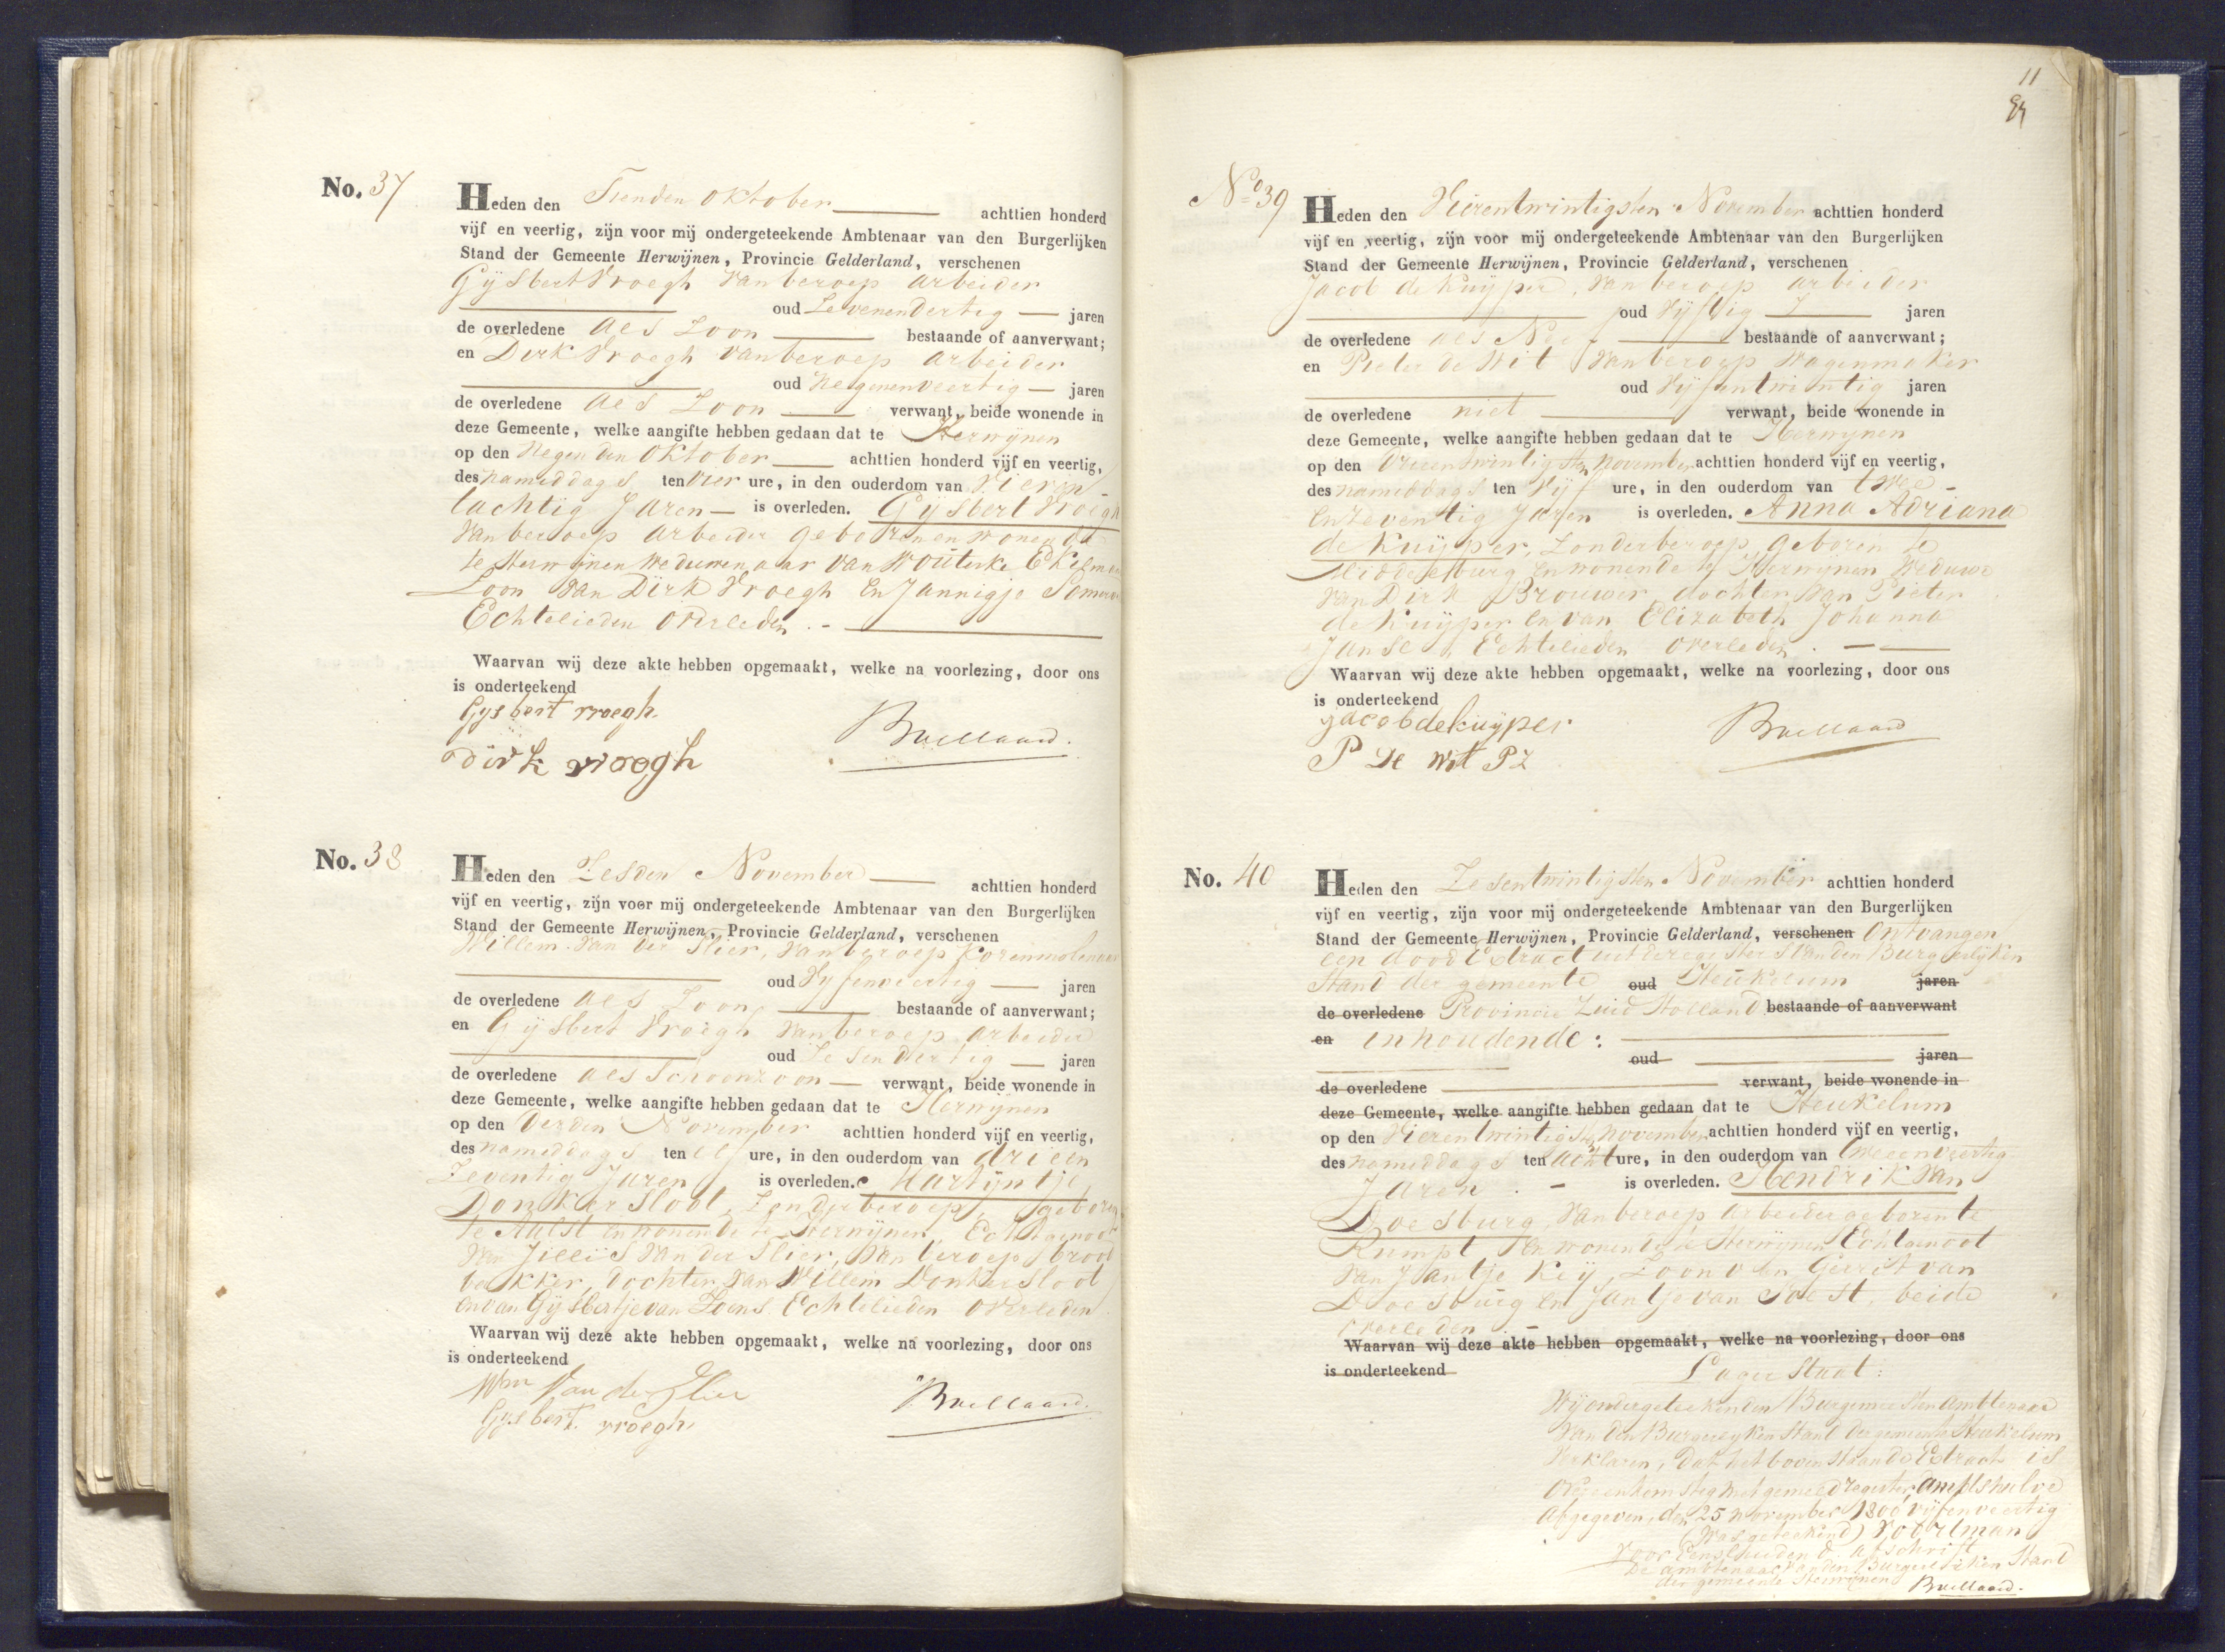 No. 37
Heden den Tienden Oktober achttien honderd
vijf en veertig, zijn voor mij ondergeteekende Ambtenaar van den Burgerlijken
Stand der Gemeente Herwijnen, Provincie Gelderland, verschenen
Gijsbert Vroegh van beroep arbeider
oud Zevenendertig jaren
de overledene als Zoon bestaande of aanverwant;
en Dirk Vroegh van beroep arbeider
oud Negenenveertig jaren
de overledene als Zoon verwant, beide wonende in
deze Gemeente, welke aangifte hebben gedaan dat te Herwijnen
op den Negenden Oktober achttien honderd vijf en veertig,
des namiddags ten vier ure, in den ouderdom van Vieren
tachtig Jaren is overleden. Gijsbert Vroegh
van beroep arbeider geboren en wonende
te Herwijnen Weduwenaar van Wouterke
Zoon van Dirk Vroegh en Jannigje
Echtelieden overleden.
Waarvan wij deze akte hebben opgemaakt, welke na voorlezing, door ons
is onderteekend
Gysbert vroegh
dirk vroegh
Buellaard.
No. 38
Heden den Zesden November achttien honderd
vijf en veertig, zijn voor mij ondergeteekende Ambtenaar van den Burgerlijken
Stand der Gemeente Herwijnen, Provincie Gelderland, verschenen
Willem van der Slier, van beroep Korenmolenaar
oud Vijfenveertig jaren
de overledene als Zoon bestaande of aanverwant;
en Gijsbert Vroegh van beroep arbeider
oud Zesendertig jaren
de overledene als Schoonzoon verwant, beide wonende in
deze Gemeente, welke aangifte hebben gedaan dat te Herwijnen
op den Derden November achttien honderd vijf en veertig,
des namiddags ten elf ure, in den ouderdom van drieen
Zeventig Jaren is overleden. Martijntje
Donkersloot, Zonder beroep, geboren
te Aalst en wonende te Herwijnen, Echtgenoot
van Jillis van der Slier, van beroep brood
bakker, dochter van Willem Donkersloot
en van Gijsbertje van Loons Echtelieden overleden.
Waarvan wij deze akte hebben opgemaakt, welke na voorlezing, door ons
is onderteekend
Wm Van der Slier
Gysbert vroegh
Buellaard.
11
No 39
Heden den Vierentwintigsten November achttien honderd
vijf en veertig, zijn voor mij ondergeteekende Ambtenaar van den Burgerlijken
Stand der Gemeente Herwijnen, Provincie Gelderland, verschenen
Jacob de Kuijper, van beroep arbeider
oud Vijftig jaren
de overledene als Neef bestaande of aanverwant;
en Pieter de Wit van beroep Wagenmaker
oud Vijfentwintig jaren
de overledene niet verwant, beide wonende in
deze Gemeente, welke aangifte hebben gedaan dat te Herwijnen
op den Drieentwintigsten November achttien honderd vijf en veertig,
des namiddags ten Vijf ure, in den ouderdom van twee
en Zeventig Jaren is overleden. Anna Adriana
de Kuijper, Zonder beroep, geboren te
Middelburg en wonende te Herwijnen Weduwe
van Dirk Brouwer, dochter van Pieter
de Kuijper en van Elizabeth Johanna
Janse, Echtelieden overleden.
Waarvan wij deze akte hebben opgemaakt, welke na voorlezing, door ons
is onderteekend
jacob de kuijper
P de Wit PZ
Buellaard
No. 40
Heden den Zesentwintigsten November achttien honderd
vijf en veertig, zijn voor mij ondergeteekende Ambtenaar van den Burgerlijken
Stand der Gemeente Herwijnen, Provincie Gelderland, verschenen Ontvangen
een dood Extract uit de register van den Burgerlijken
Stand der gemeente oud Heukelum jaren
de overledene Provincie Zuid Holland bestaande of aanverwant
en inhoudende:
oud jaren
de overledene verwant, beide wonende in
deze Gemeente, welke aangifte hebben gedaan dat te Heukelum
op den Vierentwintigsten November achttien honderd vijf en veertig,
des namiddags ten acht ure, in den ouderdom van tweeenveertig
Jaren. is overleden. Hendrik van
Doesburg, van beroep arbeider geboren te
Rumpt, en wonende te Herwijnen Echtgenoot
van Jantje Keij, Zoon van Gerrit van
Doesburg en Jantje van Soest, beide
overleden.
Waarvan wij deze akte hebben opgemaakt, welke na voorlezing, door ons
is onderteekend
Lager Staat:
Wij ondergeteekenden Burgemeester Ambtenaar
van den Burgerlyken Stand der gemeente Heukelum
verklaren, dat het bovenstaande Extract is
overeenkomstig met gemeld register, amptshalve
Afgegeven, den 25 november 1800 vijfenveertig
(Was geteekend) Voortman
Voor Eensluidend afschrift
De ambtenaar van den Burgerlijken Stand
der gemeente Herwijnen Buellaard.